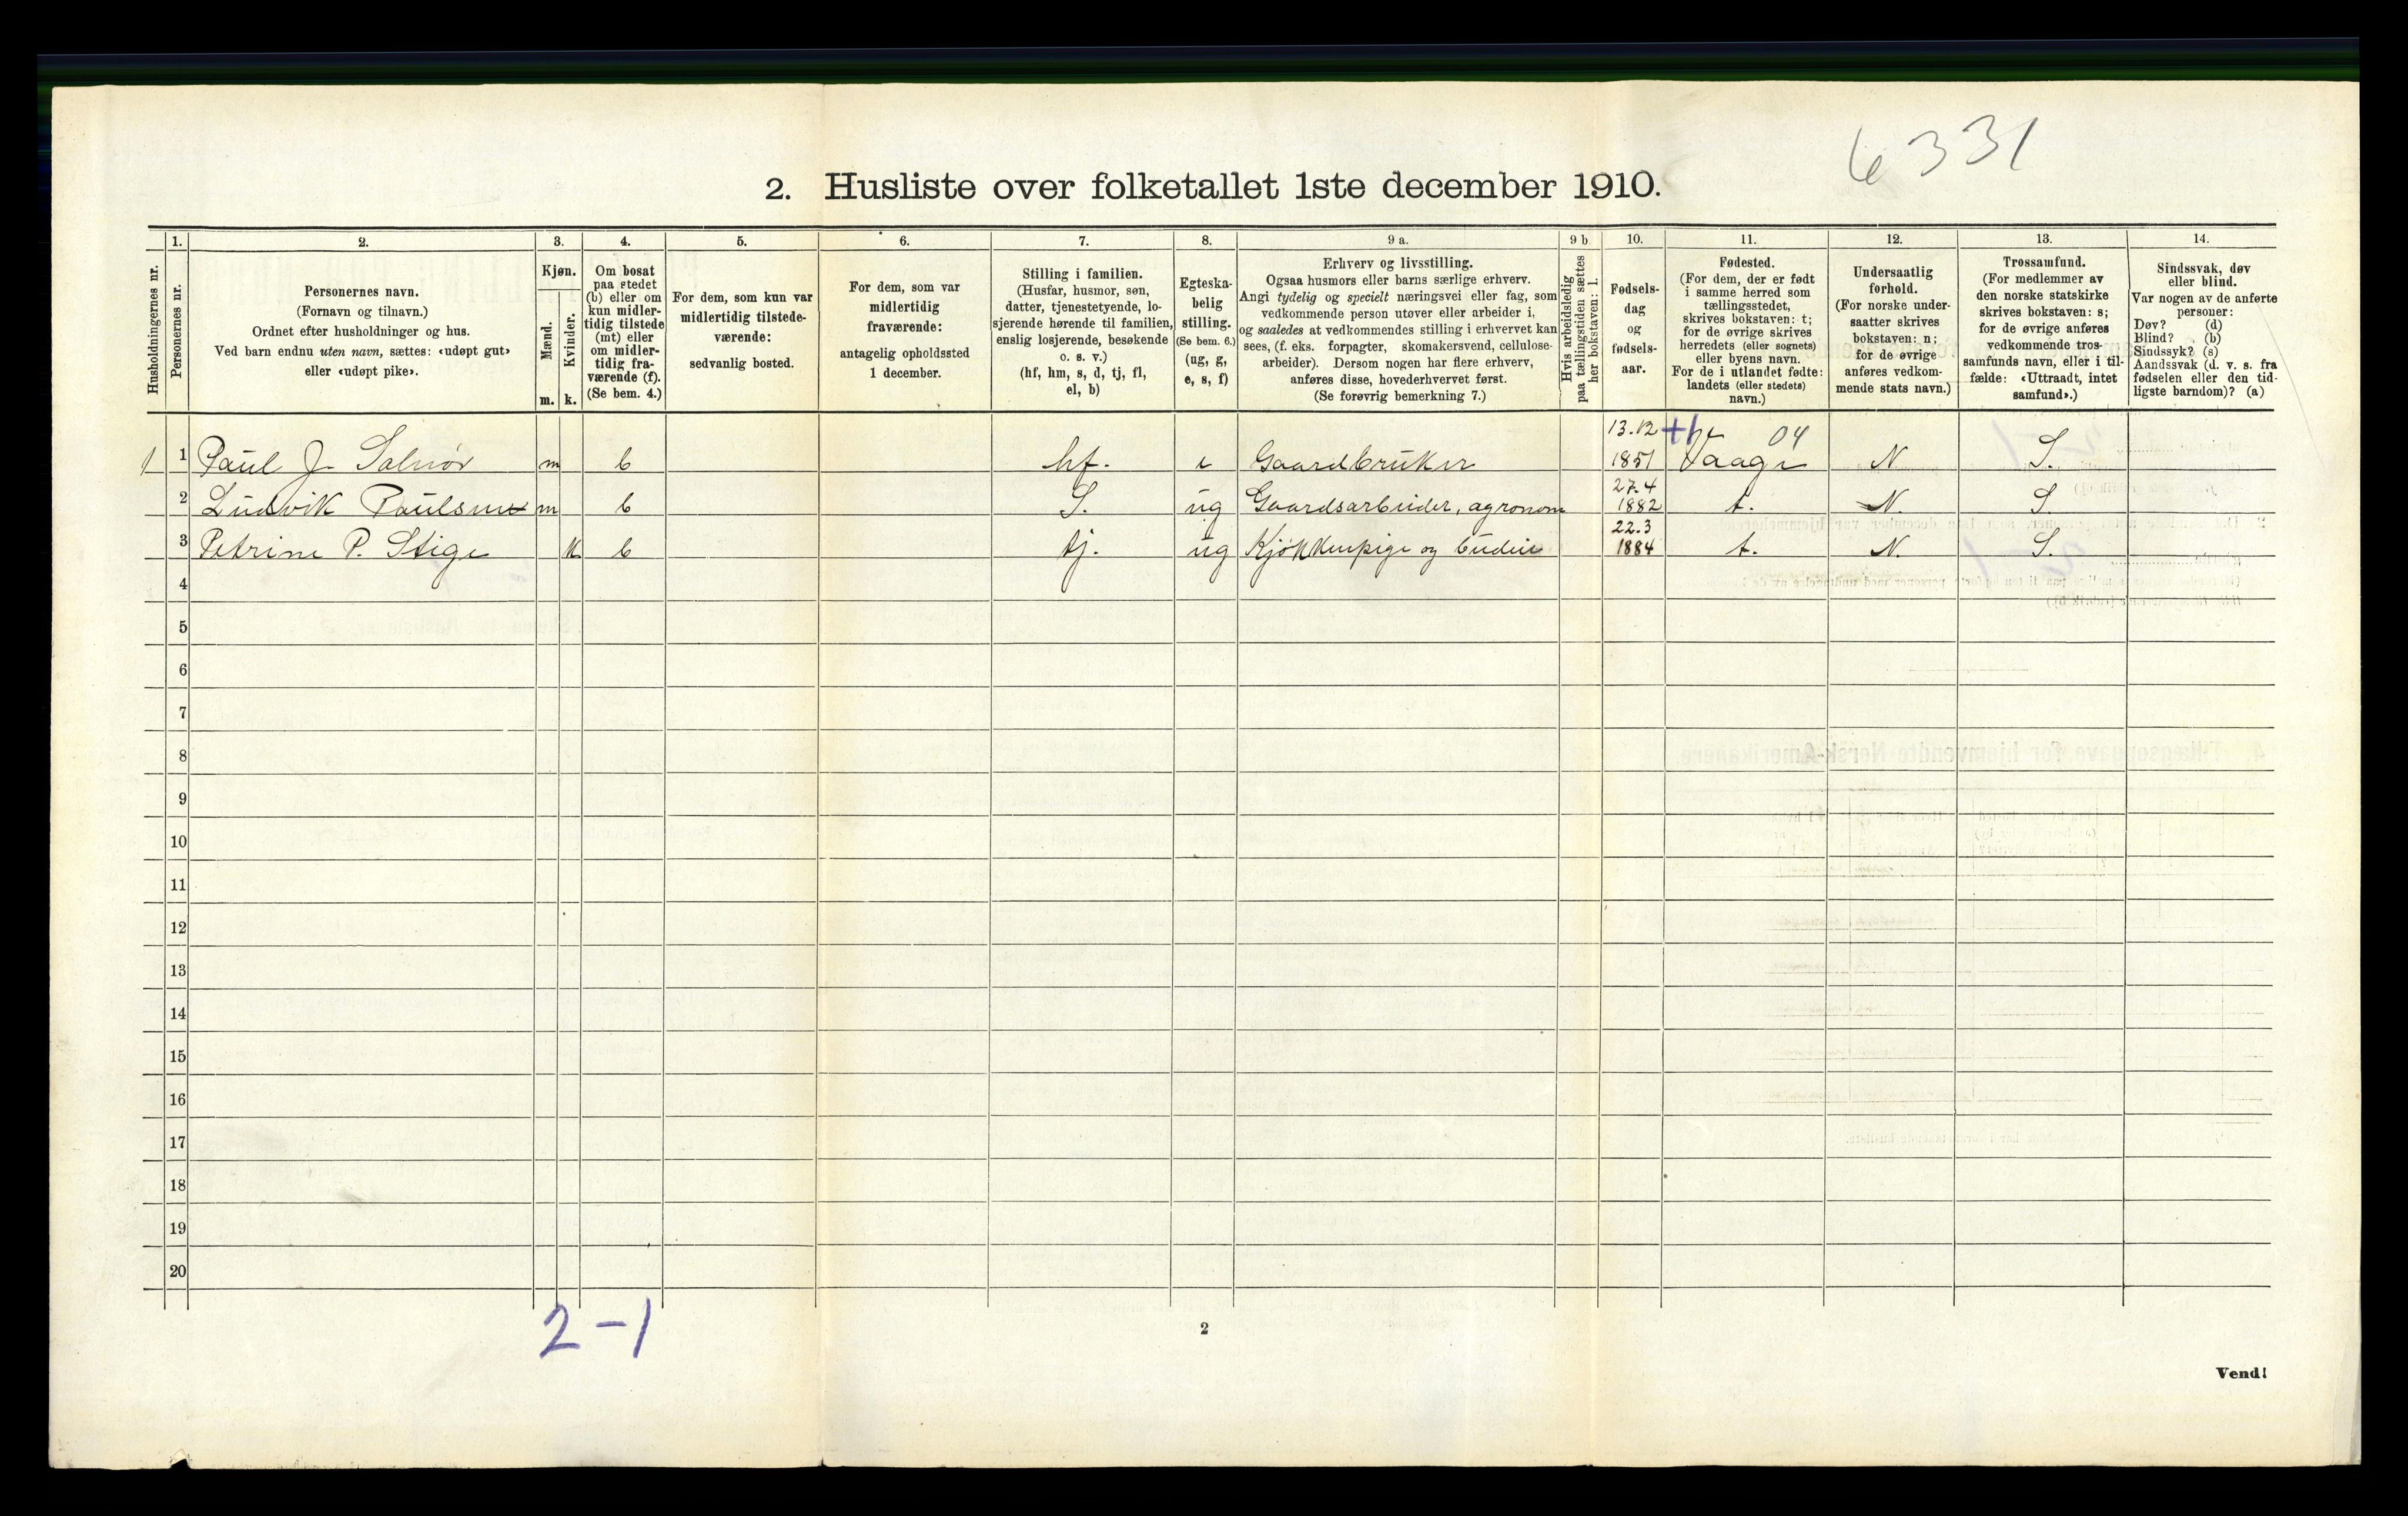 6331
2. Husliste over folketallet 1ste december 1910.
1. 2. 3. 4. 5. 6. 7. 8. 9 a. 9 b 10. 11. 12. 13. 14.
Husholdningernes nr.
Personernes nr.
Personernes navn.
(Fornavn og tilnavn.)
Ordnet efter husholdninger og hus.
Ved barn endnu uten navn, sættes: «udøpt gut»
eller «udøpt pike».
Kjøn.
Mænd.
Kvinder.
m. k.
Om bosat
paa stedet
(b) eller om
kun midler-
tidig tilstede
(mt) eller
om midler-
tidig fra-
værende (f).
(Se bem. 4.)
For dem, som kun var
midlertidig tilstede-
værende:
sedvanlig bosted.
For dem, som var
midlertidig
fraværende:
antagelig opholdssted
1 december.
Stilling i familien.
(Husfar, husmor, søn,
datter, tjenestetyende, lo-
sjerende hørende til familien,
enslig losjerende, besøkende
o. s. v.)
(hf, hm, s, d, tj, fl,
el, b)
Egteska-
belig
stilling.
(Se bem. 6.)
(ug, g,
e, s, f)
Erhverv og livsstilling.
Ogsaa husmors eller barns særlige erhverv.
Angi tydelig og specielt næringsvei eller fag, som
vedkommende person utøver eller arbeider i,
og saaledes at vedkommendes stilling i erhvervet kan
sees, (f. eks. forpagter, skomakersvend, cellulose-
arbeider). Dersom nogen har flere erhverv,
anføres disse, hovederhvervet først.
(Se forøvrig bemerkning 7.)
Hvis arbeidsledig
paa tællingstiden sættes
her bokstaven: l.
Fødsels-
dag
og
fødsels-
aar.
Fødested.
(For dem, der er født
i samme herred som
tællingsstedet,
skrives bokstaven: t;
for de øvrige skrives
herredets (eller sognets)
eller byens navn.
For de i utlandet fødte:
landets (eller stedets)
navn.)
Undersaatlig
forhold.
(For norske under-
saatter skrives
bokstaven: n;
for de øvrige
anføres vedkom-
mende stats navn.)
Trossamfund.
(For medlemmer av
den norske statskirke
skrives bokstaven: s;
for de øvrige anføres
vedkommende tros-
samfunds navn, eller i til-
fælde: «Uttraadt, intet
samfund».)
Sindssvak, døv
eller blind.
Var nogen av de anførte
personer:
Døv? (d)
Blind? (b)
Sindssyk? (s)
Aandssvak (d. v. s. fra
fødselen eller den tid-
ligste barndom)? (a)
13.12 +1 04
1 1 Paul J. Solnør m b hf. e Gaardbruker 1851 Vaage N S.
27.4
2 Ludvik Paulsen m b S. ug Gaardsarbeider, agronom 1882 t. N. S.
22.3
3 Petrine P. Stige k b tj. ug Kjøkkenpige og budeie 1884 t. N. S.
4
5
6
7
8
9
10
11
12
13
14
15
16
17
18
19
20
2-1
2
Vend!